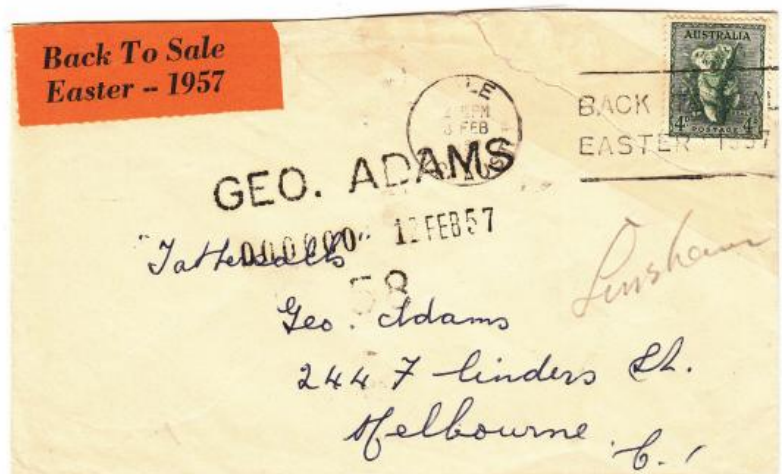 Back To Sale
Easter -- 1957
AUSTRALIA
4D 4D
POSTAGE
LE
PM
FEB
BACK
EASTER 1957
GEO. ADAMS
000000 12 FEB 57
"Tattersalls"
58
Geo. Adams
244 Flinders St.
Melbourne.
C.1